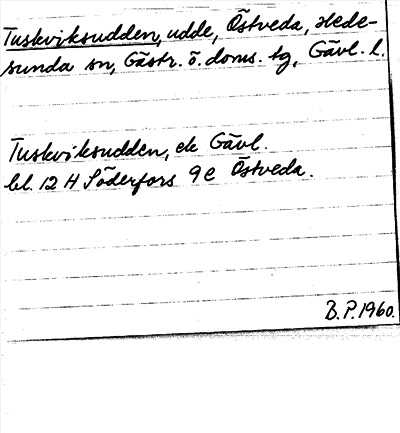 Tuskviksudden, udde, Östveda, Hede-
sunda sn, Gästr. ö. doms. tg, Gävl. l.
Tuskviksudden, ek Gävl.
bl. 12 H Söderfors 9e Östveda.
B.P. 1960.